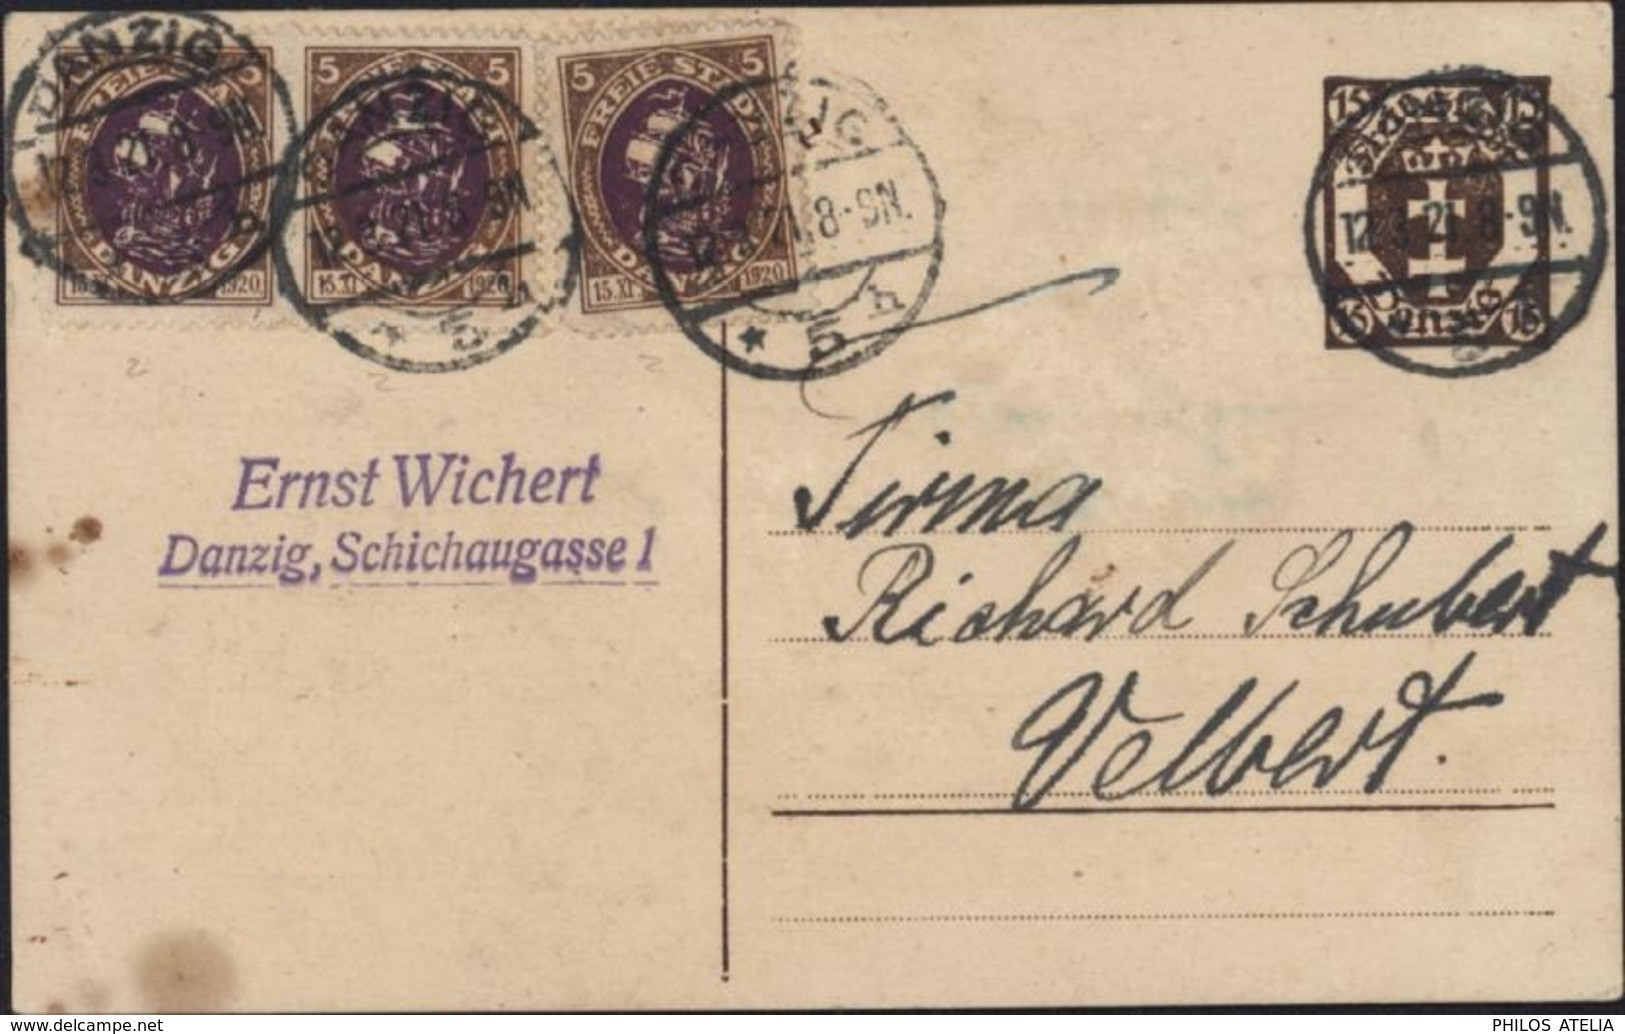 DANZIG
5 5
FREIE STADT
DANZIG
15.XI. 1920
5 5
FREIE STADT
DANZIG
15.XI. 1920
5
FREIE STADT
DANZIG
15.XI. 1920
DANZIG
12.3.21.8-9N.
* 5 h
15 15
12.3.21.8-9N.
Danzig
15 15
Ernst Wichert
Danzig, Schichaugasse 1
Firma
Richard Schubert
Velbert.
www.delcampe.net
PHILOS ATELIA